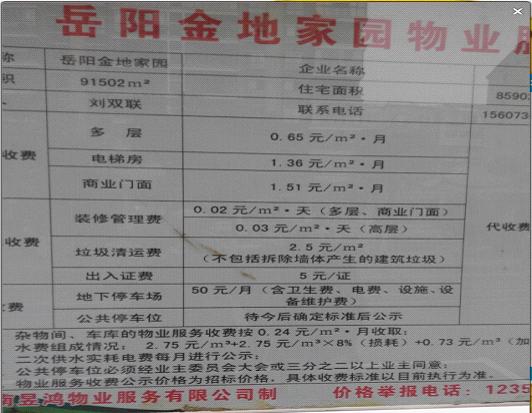 岳阳金地家园物业服
称 岳阳金地家园 企业名称
识 91502m² 住宅面积 8590
刘双联 联系电话 156073
收费 多 层 0.65 元/m²·月
电梯房 1.36 元/m²·月
商业门面 1.51 元/m²·月
收费 装修管理费 0.02 元/m²·天（多层、商业门面） 代收费
0.03 元/m²·天（高层）
垃圾清运费 2.5 元/m²
（不包括拆除墙体产生的建筑垃圾）
出入证费 5 元/证
费 地下停车场 50 元/月（含卫生费、电费、设施、设
备维护费）
公共停车位 待今后确定标准后公示
杂物间、车库的物业服务收费按 0.24 元/m²·月收取；
水费组成情况： 2.75 元/m³+2.75 元/m³×8%（损耗）+0.73 元/m³（加
二次供水实耗电费每月进行公示；
公共停车位必须经业主委员会大会或三分之二以上业主同意；
物业服务收费公示价格为招标价格，具体收费标准以目前执行为准。
南昱鸿物业服务有限公司制 价格举报电话：1235